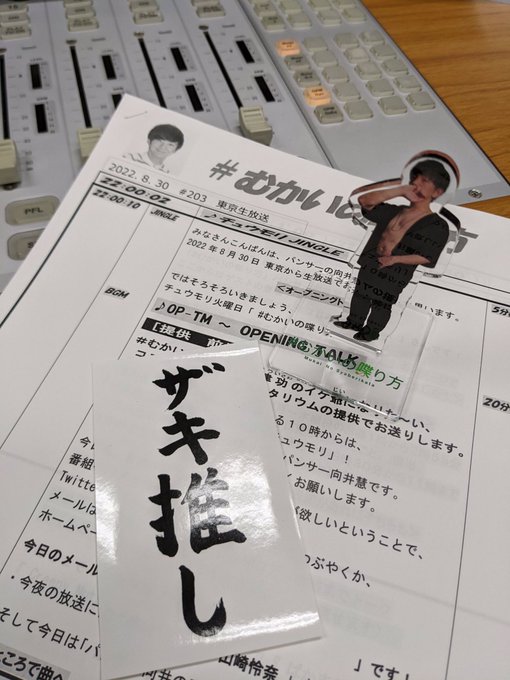 PFL
2022. 8. 30 #203 東京生放送
#むかいの
方
22:00:02
22:00:10
JINGLE
♪チュウモリ JINGLE
みなさんこんばんは、パンサーの向井
2022年8月30日 東京から生放送でお
います。
<オープニングト
ではそろそろいきましょう、
チュウモリ火曜日「#むかいの喋り
BGM
♪OP-TM ～ OPENING TALK
むかいの喋り方
Mukai No Syaberikata
5分
20分
[提供
#むかい
コ
功のイケ爺になりた～い、
タリウムの提供でお送りします。
る10時からは、
チュウモリ」！
パンサー向井慧です。
お願いします。
が欲しいということで、
つぶやくか、
ザキ推し
今日
番組
Twitte
メールは
ホームペー
今日のメール
・今夜の放送に
そして今日は「パ
山崎怜奈
」です！
ころで曲へ